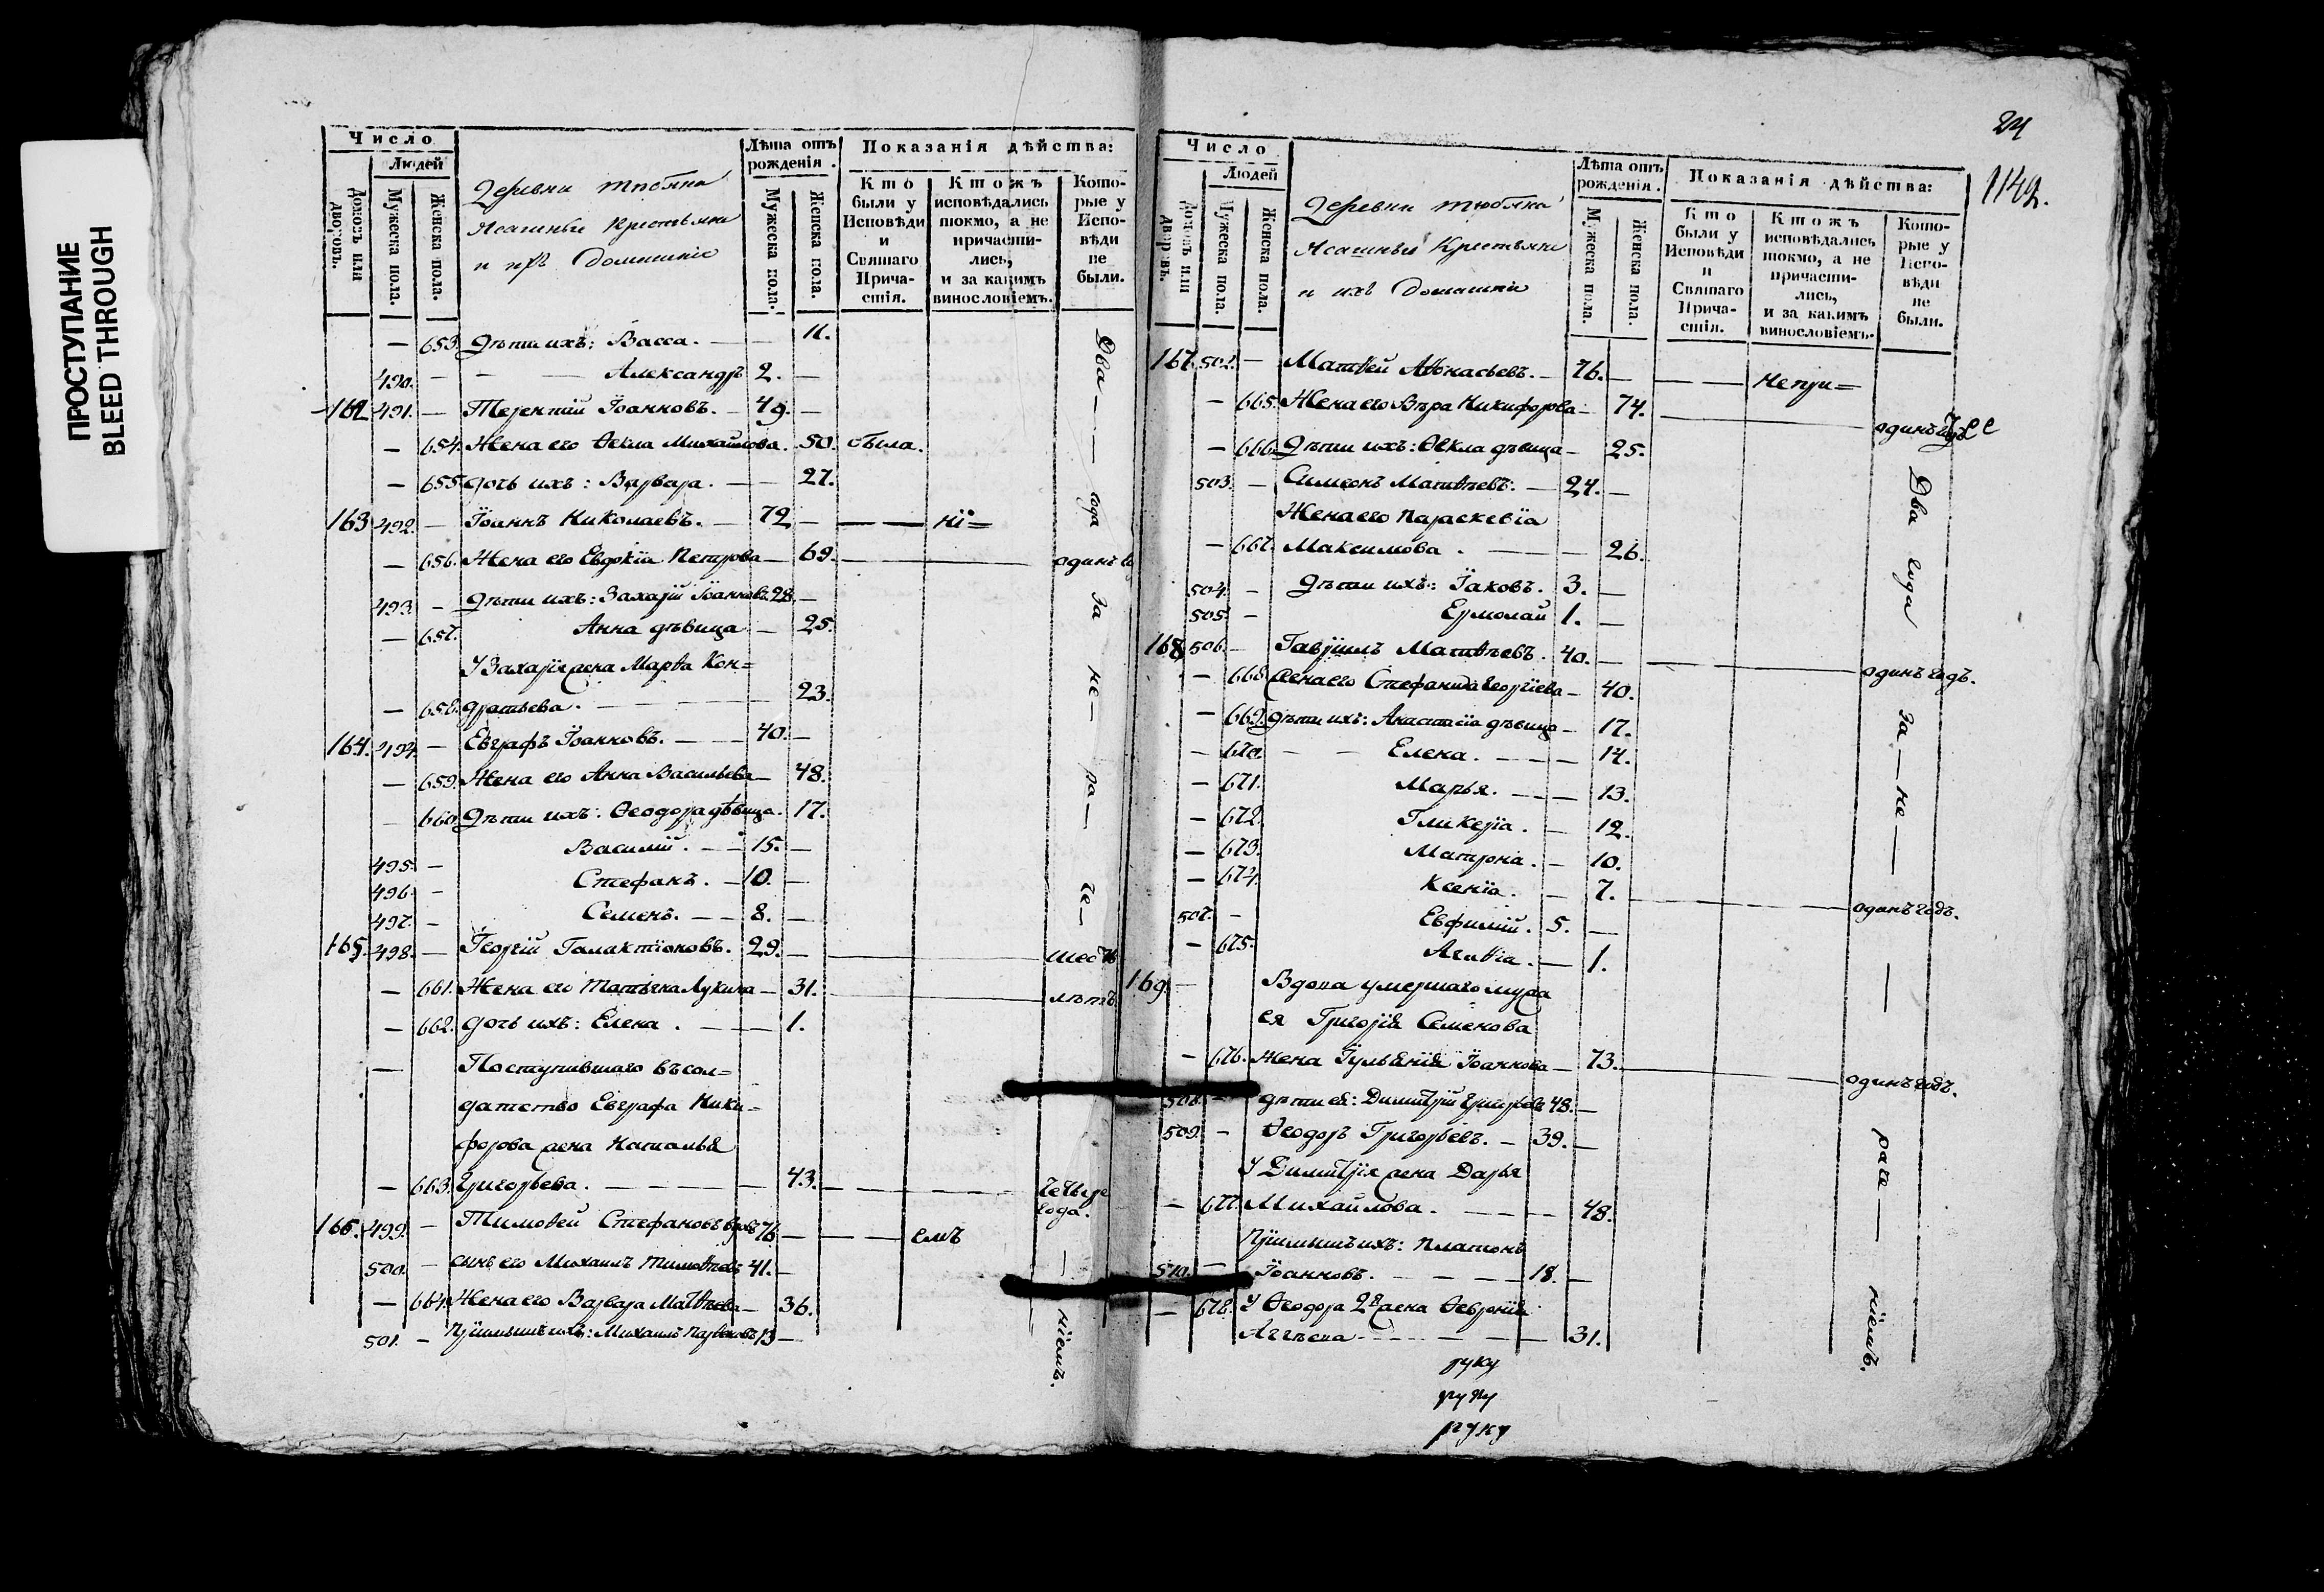 ПРОСТУПАНИЕ
BLEED THROUGH
Число
Людей
Домовъ или дворовъ.
Мужеска пола.
Женска пола.
Деревни Тюбяка
Ясашные Крестьяне
и ихъ домашніе
Лѣта отъ рожденія.
Мужеска пола.
Женска пола.
Показанія дѣйства:
Кто были у Исповѣди и Святаго Причастія.
Ктожъ исповѣдались токмо, а не причастились, и за какимъ винословіемъ.
Которые у Исповѣди не были.
— 653. Дѣти ихъ: Васса. — — 11.
490. — — — Александръ 2. —
162 491. — Терентій Іоанновъ. — 49. —
— 654. Жена его Ѳекла Михайлова. 50. была.
— 655. дочь ихъ: Варвара. — — 27.
163 492. — Іоаннъ Николаевъ. — 72 — — — ні=
— 656. Жена его Евдокіа Петрова — 69. — одинъ
493 — Дѣти ихъ: Захарій Іоанновъ 28. —
— 657. Анна дѣвица — 25.
У Захаріа жена Марѳа Кон=
— 658. дратьева. — — — — 23.
164. 494 — Евграфъ Іоанновъ. — — 40. —
— 659. Жена его Анна Васильева — 48.
— 660. Дѣти ихъ: Ѳеодора дѣвица. 17.
495. — Василій. — — 15. —
496. — Стефанъ. — 10. —
497. — Семенъ. — — 8. —
165. 498. — Георгій Галактіоновъ. 29. — — шесть
— 661. Жена его Татьяна Лукина — 31. — лѣтъ
— 662. дочь ихъ: Елена. — — 1.
— Поступившаго въ сол=
датство Евграфа Ники=
форова жена Наталья
— 663. Григорьева. — — — — 43. — четыре
года.
166. 499. — Тимоѳей Стефановъ вдовъ 76 — — — емъ
500. — сынъ его Михаилъ Тимоѳеевъ 41. —
— 664. Жена его Варвара Матѳеева — 36.
501. — Пріимышъ ихъ: Михаилъ 13 —
Два — — года за не — ра — че — — ніемъ.
24
1149.
Число
Людей
Домовъ или дворовъ.
Мужеска пола.
Женска пола.
Деревни Тюбяка
Ясашные Крестьяне
и ихъ домашніе
Лѣта отъ рожденія.
Мужеска пола.
Женска пола.
Показанія дѣйства:
Кто были у Исповѣди и Святаго Причастія.
Ктожъ исповѣдались токмо, а не причастились, и за какимъ винословіемъ.
Которые у Исповѣди не были.
167. 502. — Матѳей Аѳонасьевъ. — 76. — — — Непри=
— 665. Жена его Вѣра Никифорова — 74. — одинъ
— 666. Дѣти ихъ: Ѳекла дѣвица — 25.
503. — Симеонъ Матѳеевъ. — 24. —
Жена его Параскевіа
— 667. Максимова. — — 26.
504. — Дѣти ихъ: Іаковъ. 3. —
505. — Ермолай 1. —
168. 506. — Гавріилъ Матѳеевъ. 40. — — одинъ годъ.
— 668. жена его Стефанида Георгіева — 40.
— 669. дѣти ихъ: Анастасіа дѣвица — 17.
— 670. — — Елена. — — — 14.
— 671. Марья. — — — 13.
— 672. Гликеріа. — 12.
— 673. Матрона. — 10.
— 674. Ксеніа. — 7. — одинъ годъ.
507. — Евфимій. 5. —
— 675. Агаѳіа. — 1.
169. — Вдова умершаго мужа
ея Григорія Семенова
— 676. жена Іульянія Іоаннова — 73. — одинъ годъ.
508. — дѣти ея: Димитрій Григорьевъ 48. —
509. — Ѳеодоръ Григорьевъ. — 39. —
У Димитрія жена Дарья
— 677. Михайлова. — — — 48.
Пріимышъ ихъ: Платонъ
510. — Іоанновъ. — — — 18. —
— 678. У Ѳеодора 2я жена Ѳевронія
Аггѣева — — — 31.
Два года за — не — — раче — ніемъ.
руку
руку
руку